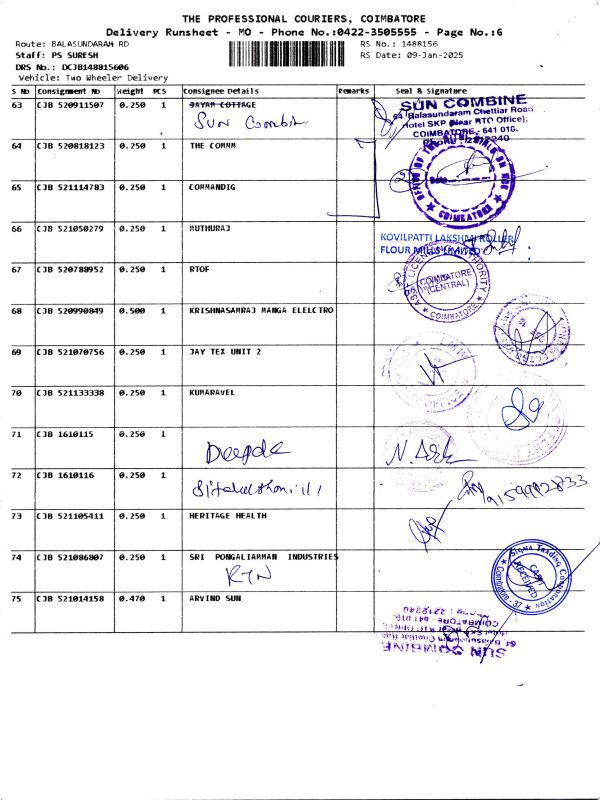 THE PROFESSIONAL COURIERS, COIMBATORE
Delivery Runsheet - MO - Phone No.:0422-3505555 - Page No.:6
Route: BALASUNDARAM RD
RS No.: 1488156
Staff: PS SURESH
RS Date: 09-Jan-2025
DRS No.: DCJB148815606
Vehicle: Two Wheeler Delivery
S No Consignment No Weight PCS Consignee Details Remarks Seal & Signature
63 CJB 520911507 0.250 1 JAYAM COTTAGE
Sun Combin
SUN COMBINE
64, Balasundaram Chettiar Road
Hotel SKP (Near RTO Office),
COIMBATORE - 641 018.
Phone : 2212240
64 CJB 520818123 0.250 1 THE COMMM
COIMBATORE
65 CJB 521114783 0.250 1 COMMANDIG
66 CJB 521050279 0.250 1 MUTHURAJ
KOVILPATTI LAKSHMI ROLLER
FLOUR MILLS LIMITED
67 CJB 520788952 0.250 1 RTOF
COIMBATORE
(CENTRAL)
COIMBATORE
68 CJB 520990849 0.500 1 KRISHNASAMRAJ MANGA ELELCTRO
69 CJB 521070756 0.250 1 JAY TEX UNIT 2
70 CJB 521133338 0.250 1 KUMARAVEL
71 CJB 1610115 0.250 1
Deepak
72 CJB 1610116 0.250 1
9159992833
73 CJB 521105411 0.250 1 HERITAGE HEALTH
74 CJB 521086807 0.250 1 SRI PONGALIAMMAN INDUSTRIES
KTN
Sigma Trading Corporation
Coimbatore - 37
RECEIVED
75 CJB 521014158 0.470 1 ARVIND SUN
SUN COMBINE
64, Balasundaram Chettiar Road
Hotel SKP (Near RTO Office),
COIMBATORE - 641 018.
Phone : 2212240